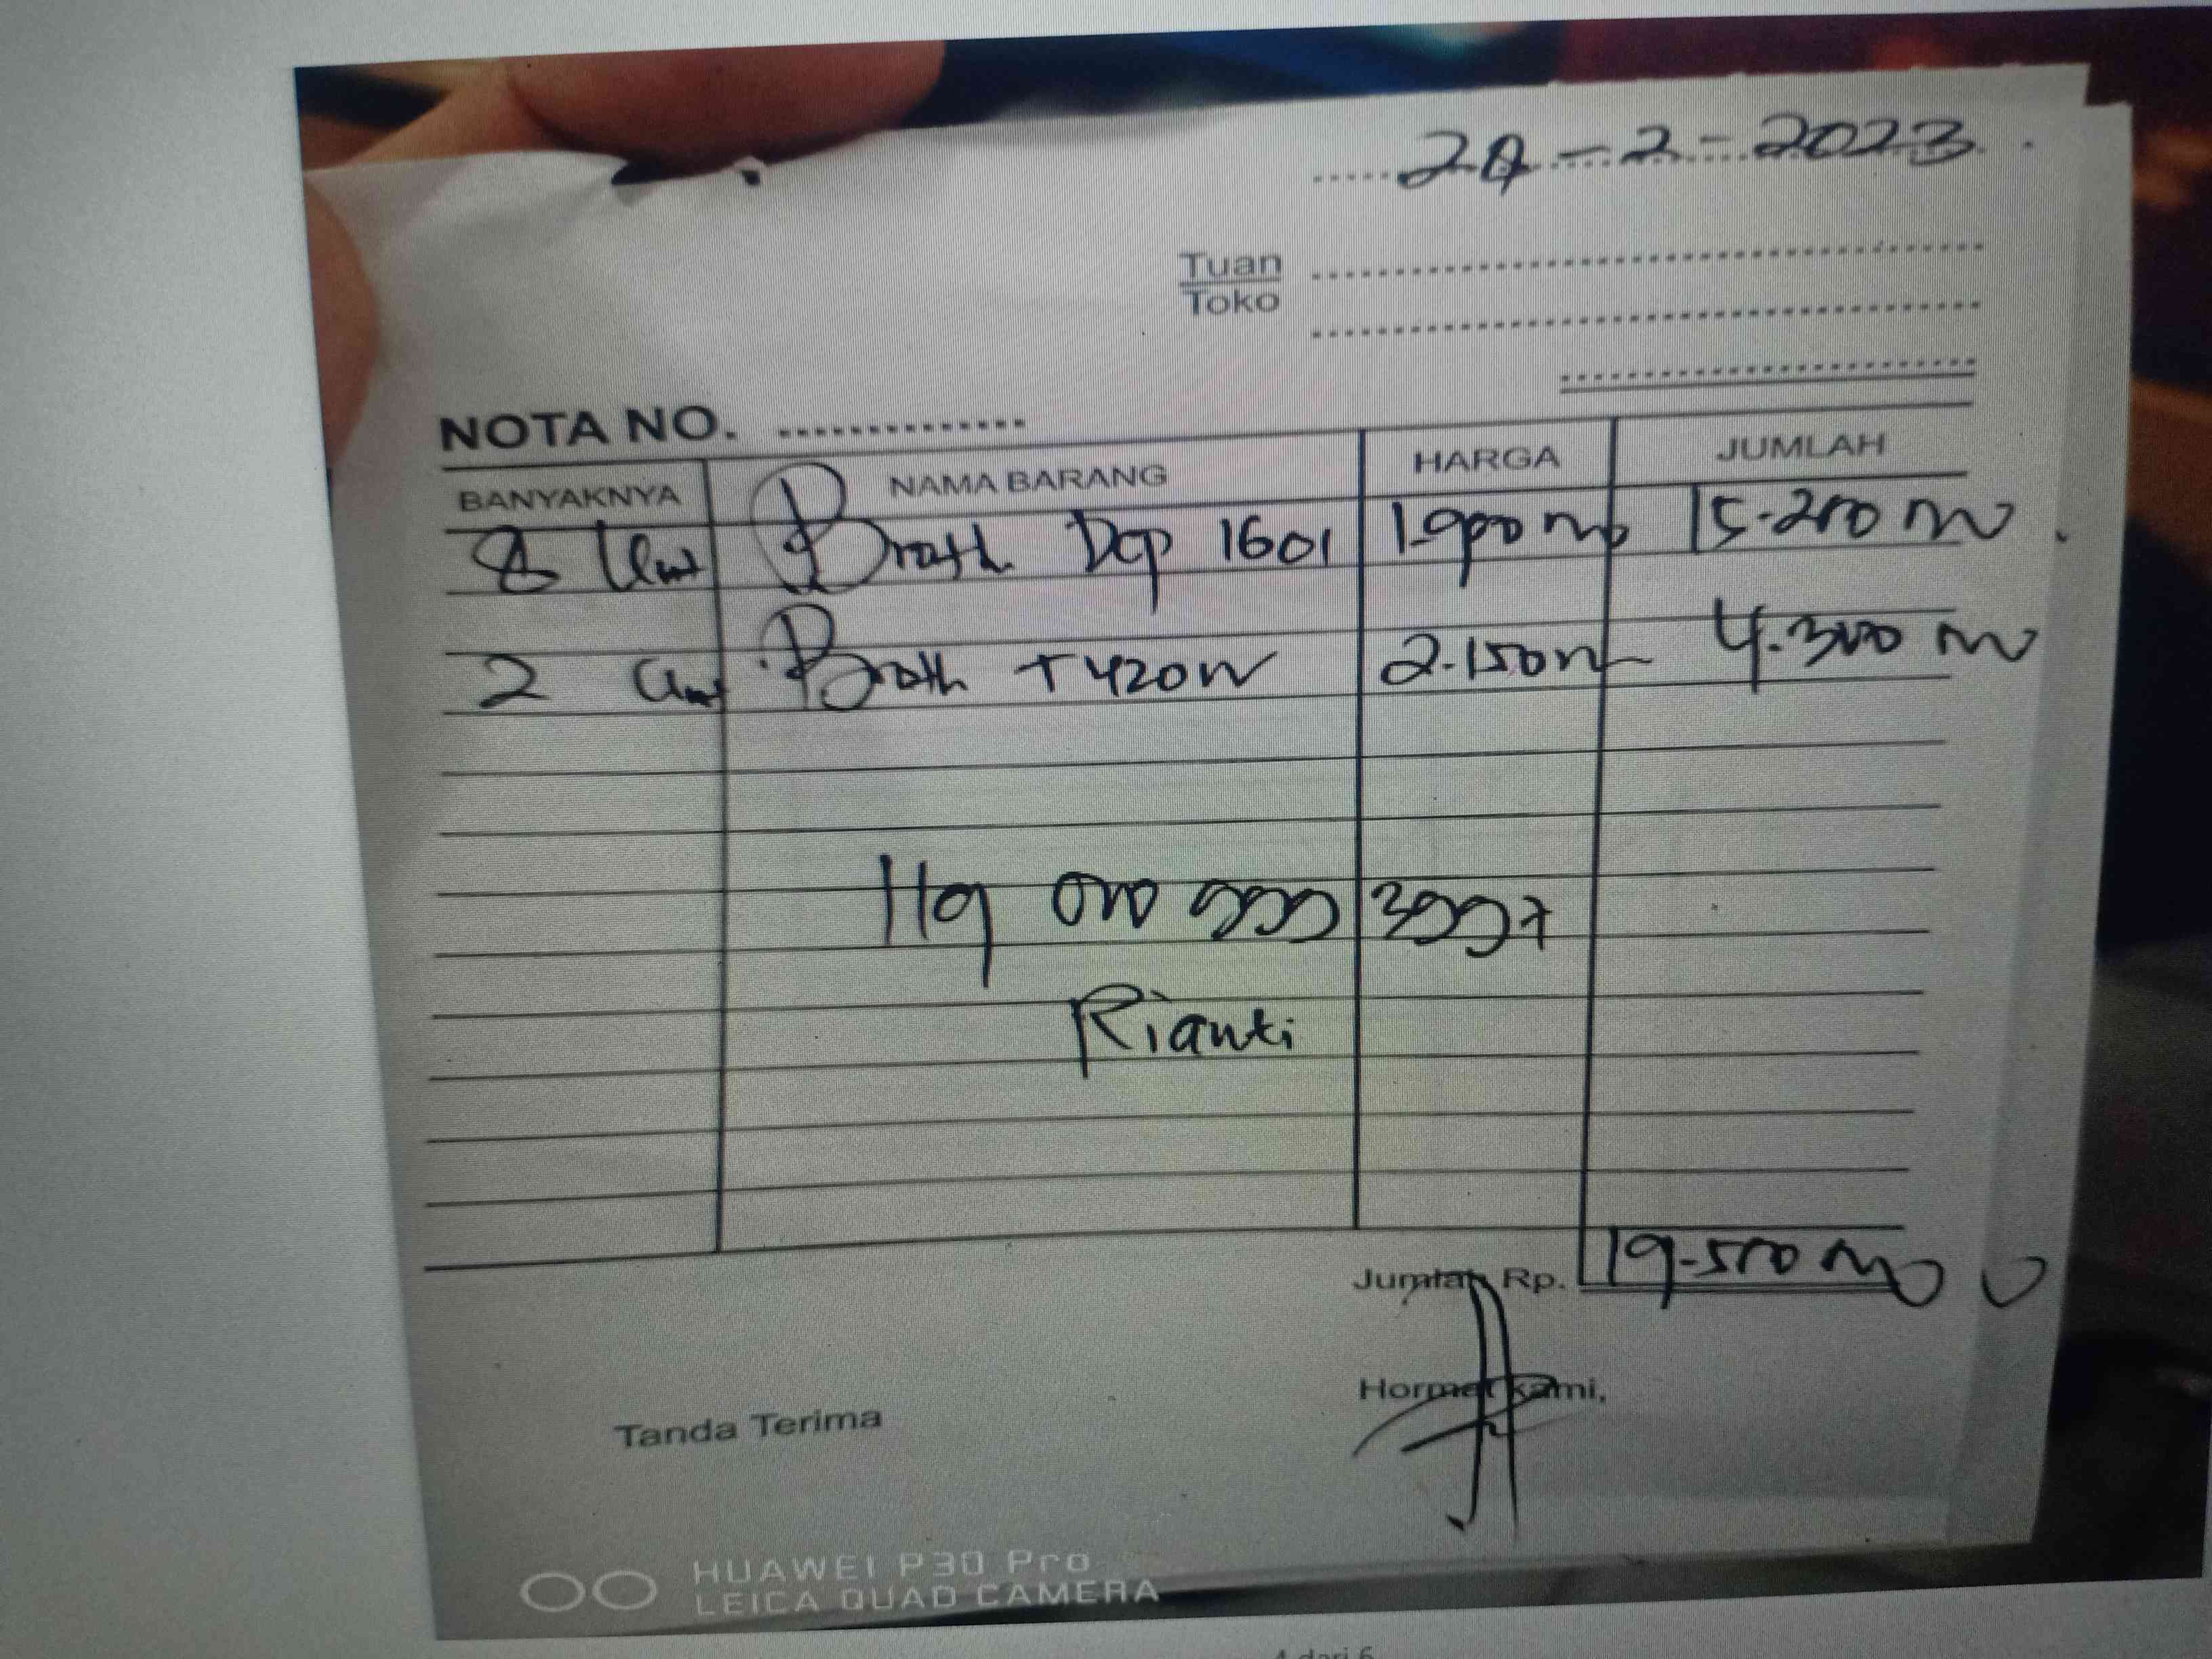 24-2-2023
Tuan
Toko
NOTA NO.
BANYAKNYA NAMA BARANG HARGA JUMLAH
8 Unit Broth Dcp 1601 1.900 15.200
2 Unit Broth T420W 2.150 4.300
119
Rianti
Jumlah Rp. 19.500
Hormat kami,
Tanda Terima
HUAWEI P30 Pro
LEICA QUAD CAMERA
4 dari 6